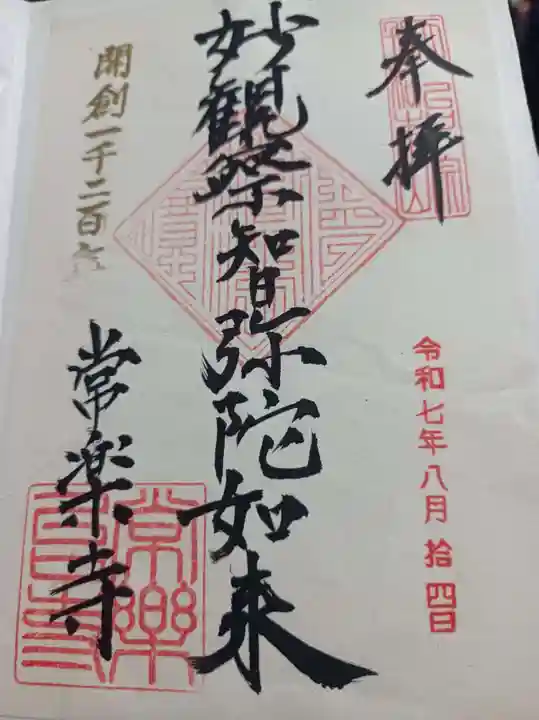 奉拝
令和七年八月拾四日
妙觀察智弥陀如来
開創一千二百年
常楽寺
常樂